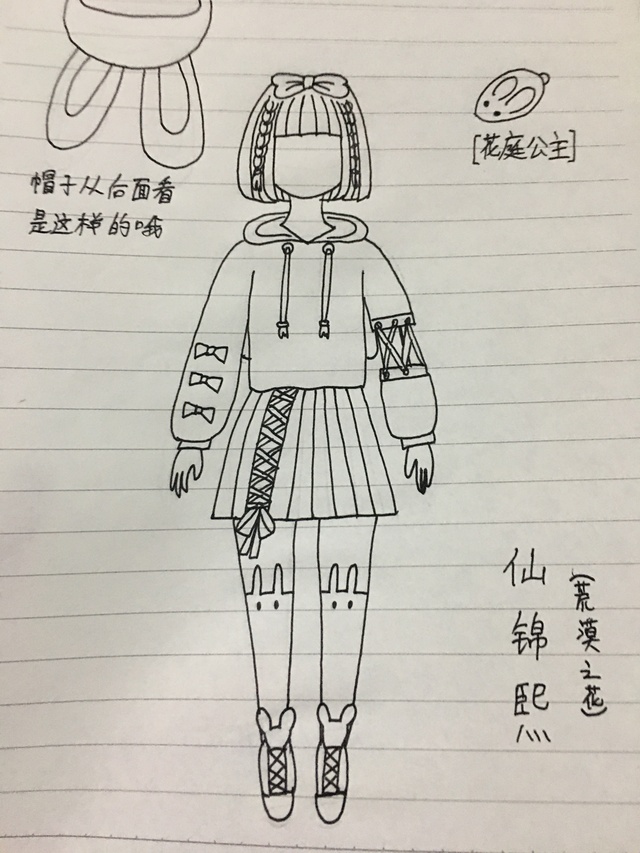 [花庭公主]
帽子从后面看
是这样的哦
仙锦熙
(荒漠之花)